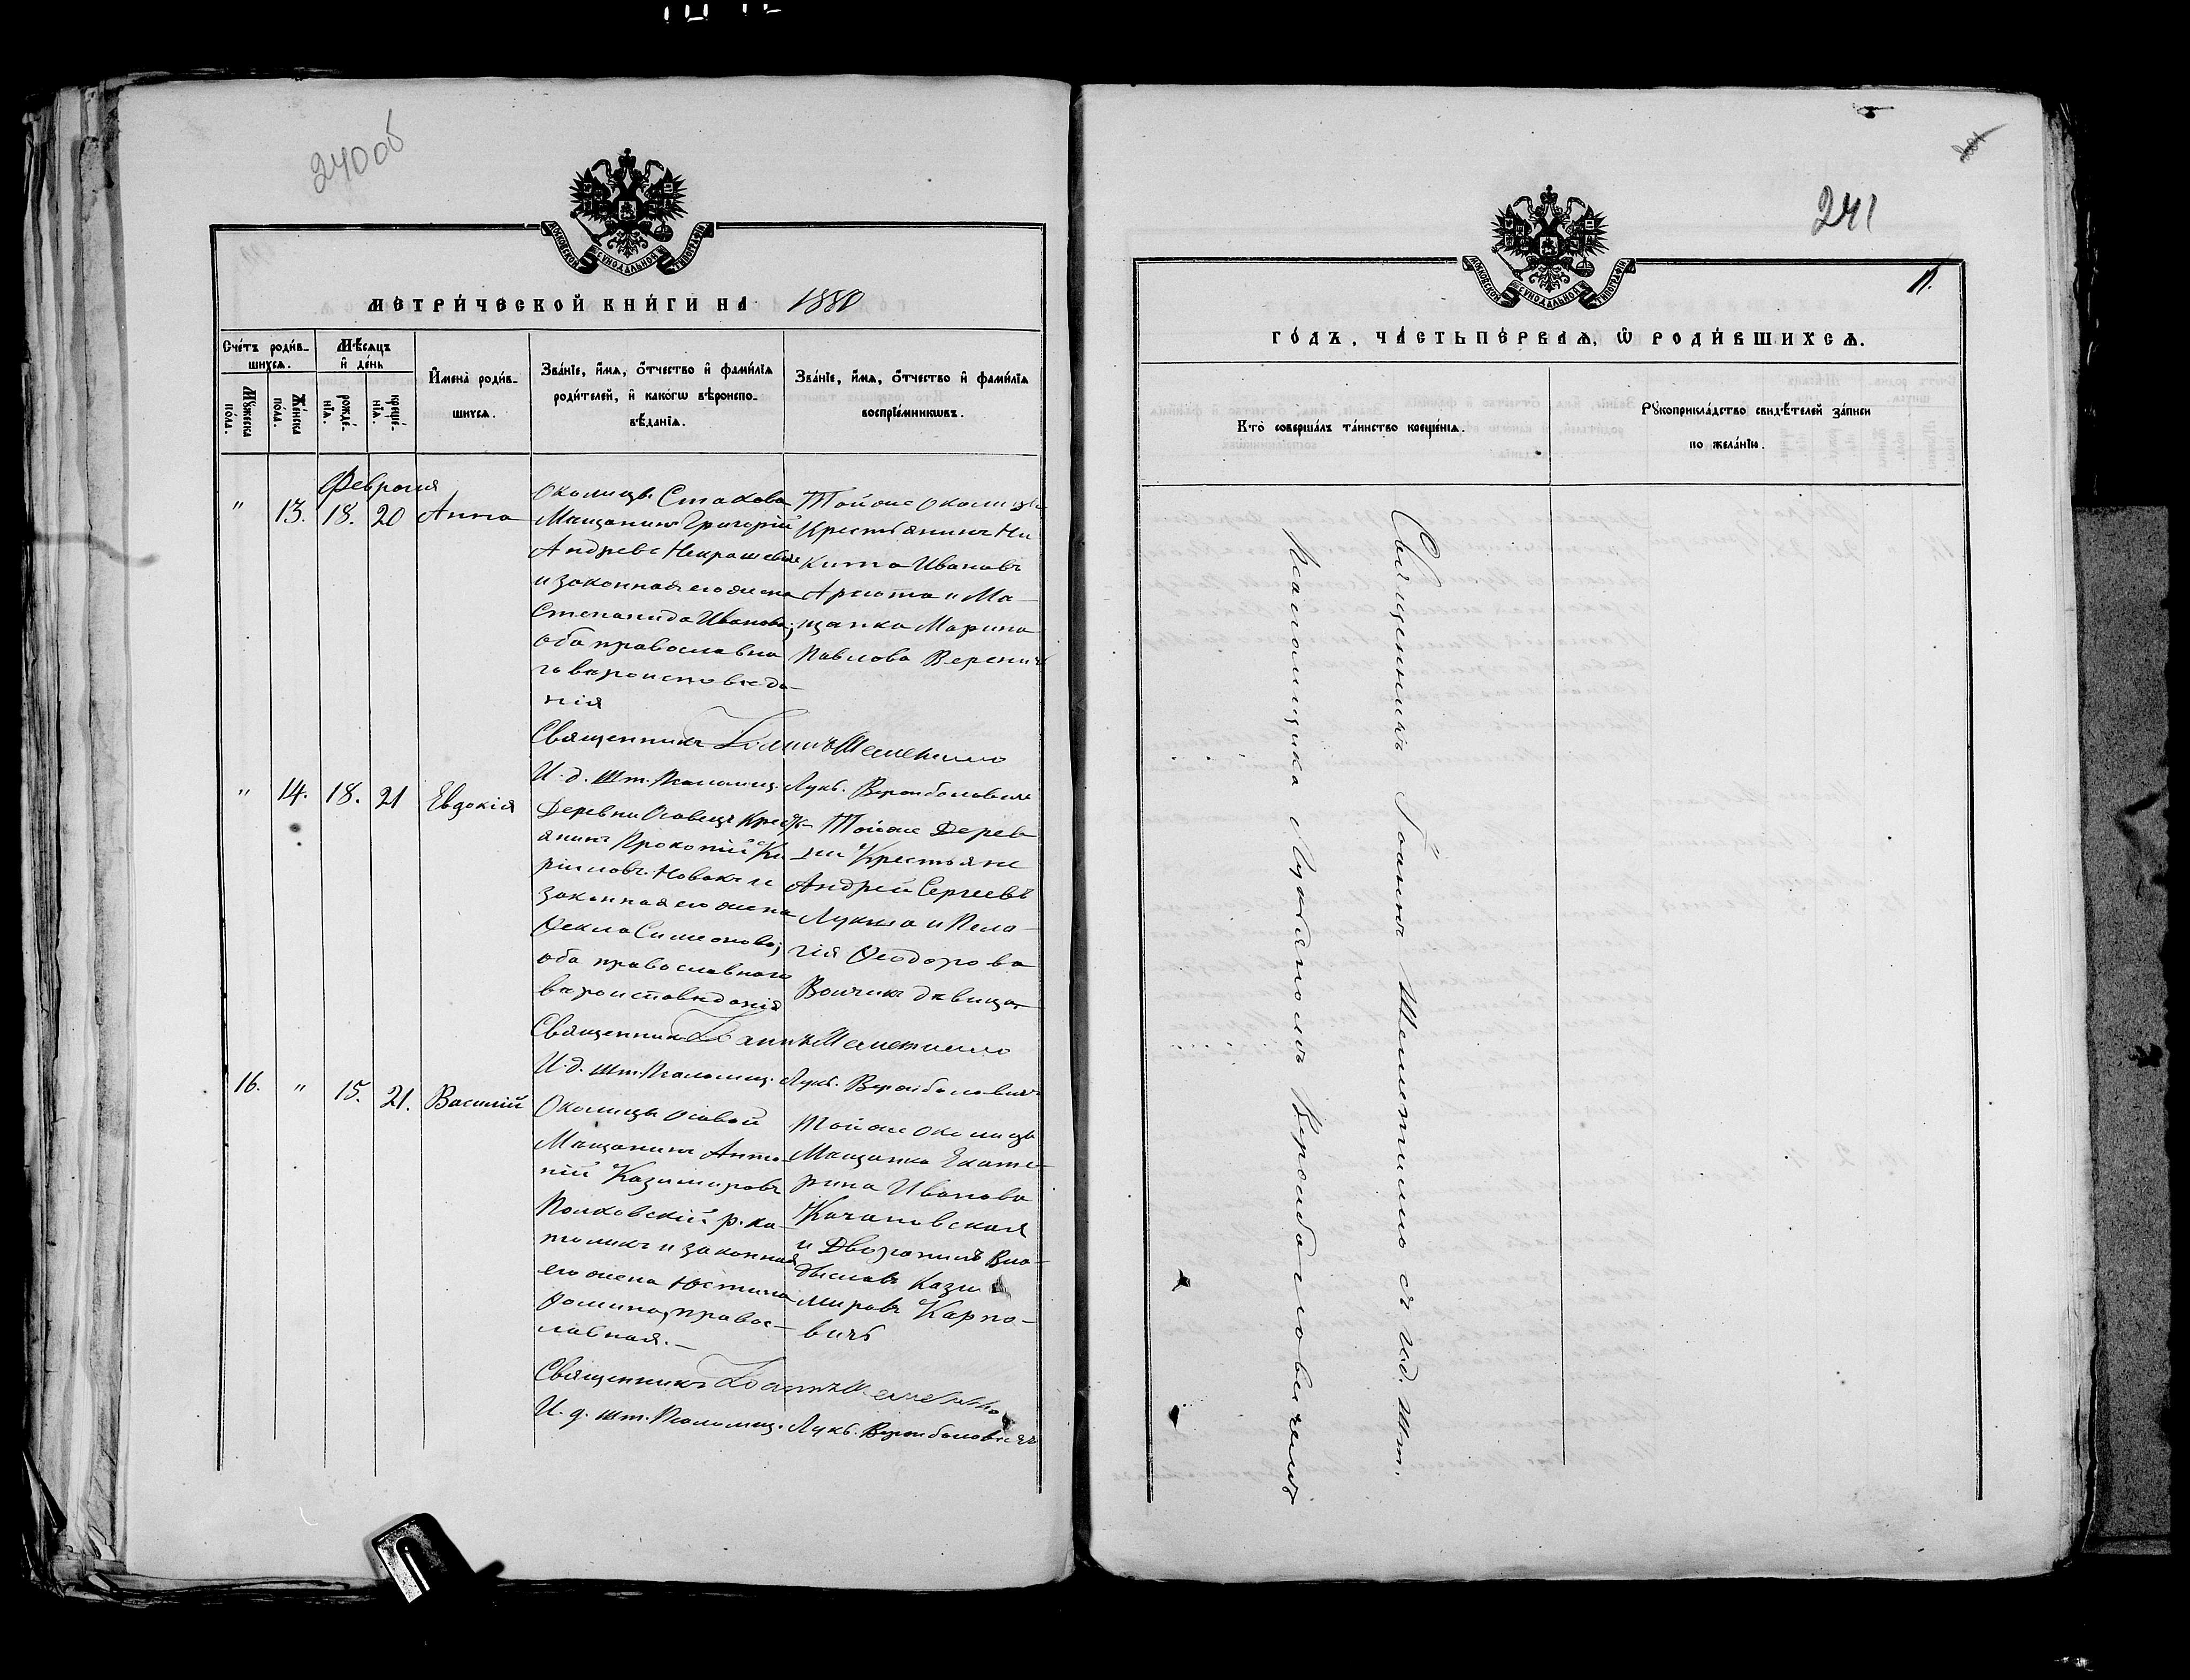 240об
МОСКОВСКОЙ СУНОДАЛЬНОЙ ТИПОГРАФІИ
МЕТРИ́ЧЕСКОЙ КНИ́ГИ НА 1880
Сче́тъ роди́в-
шихсѧ.
Мꙋ́жеска по́ла.
Же́нска по́ла.
Мѣ́сѧцъ
и҆ де́нь
рожде́-
нїѧ.
креще́-
нїѧ.
И҆мена̀ роди́в-
шихсѧ.
Зва́нїе, и҆́мѧ, ѻ҆́тчество и҆ фами́лїѧ
роди́телей, и҆ како́гѡ вѣроиспо-
вѣ́данїѧ.
Зва́нїе, и҆́мѧ, ѻ҆́тчество и҆ фами́лїѧ
воспрїе́мникѡвъ.
Февраля
" 13. 18. 20 Анна
Околицы Стахова
Мѣщанинъ Григорій
Андреевъ Некрашевичъ
и законная его жена
Степанида Иванова;
оба православна
го вѣроисповѣда-
нія
Тойже Околицы
Крестьянинъ Ни
кита Ивановъ
Арюта и Мѣ-
щанка Марина
Павлова Веренич
Священникъ Іоаннъ Шеметилло
И. д. Шт. Псаломщ. Лукъ. Верамболовичъ
" 14. 18. 21 Евдокія
Деревни Осовецъ Кресть-
янинъ Прокопій Ки
рилловъ Новакъ и
законная его жена
Ѳекла Симеонова;
оба православнаго
вѣроисповѣданія
Тойже Дерев-
ни Крестьяне
Андрей Сергеевъ
Лукша и Пела-
гія Ѳеодорова
Войчикъ дѣвица
Священникъ Іоаннъ Шеметилло
И. д. шт. Псаломщ. Лукъ. Верамболовичъ
16. " 15. 21. Василій
Околицы Осовой
Мѣщанинъ Анто-
ній Казимировъ
р. ка-
толикъ и законная
его жена Юстина
Ѳомина, правос-
лавная.
Тойже Околицы
Мѣщанка Екате-
рина Иванова
Качановская
и Дворянинъ Вла-
дыславъ Кази
мировъ Карпо-
вичъ
Священникъ Іоаннъ Шеметилло
И. д. шт. Псаломщ. Лукъ. Верамболовичъ
241
11.
МОСКОВСКОЙ СУНОДАЛЬНОЙ ТИПОГРАФІИ
ГО́ДЪ, ЧА́СТЬ ПЕ́РВАѦ, Ѽ РОДИ́ВШИХСѦ.
Кто̀ соверша́лъ та́инство креще́нїѧ.
Рꙋкоприкла́дство свидѣ́телей за́писи
по жела́нїю.
Священникъ Іоаннъ Шеметилло съ и.д. шт.
Псаломщика Лукіаномъ